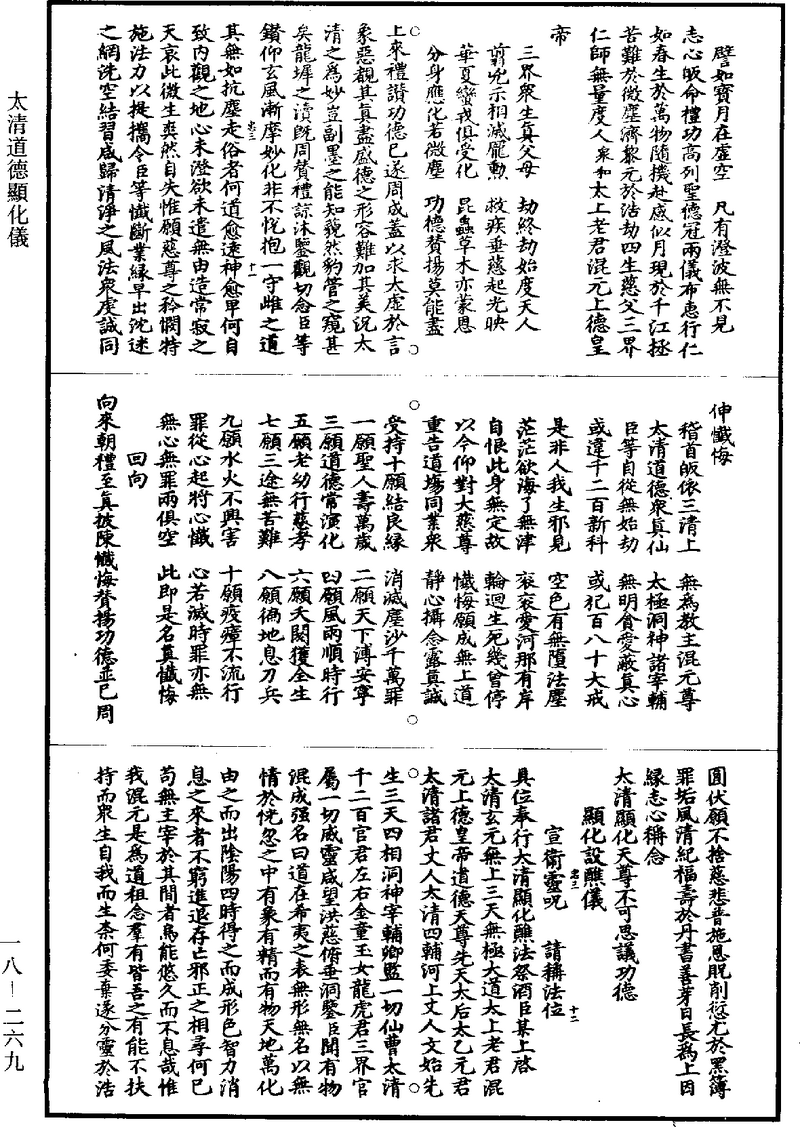 太清道德顯化儀
譬如寶月在虛空　凡有澄波無不見
志心皈命禮功高列聖德冠兩儀布惠行仁
如春生於萬物隨機赴感似月現於千江拯
苦難於微塵濟黎元於浩劫四生慈父三界
仁師無量度人衆和太上老君混元上德皇
帝
三界衆生真父母　劫終劫始度天人
翦兇示相滅龎勲　救疾垂慈起光映
華夏蠻戎俱受化　昆蟲草木亦蒙恩
分身應化若微塵　功德贊揚莫能盡
上來禮讚功德已遂周成蓋以求太虛於言
象惡觀其真盡盛德之形容難加其美況太
清之爲妙豈副墨之能知貌然豹管之窺甚
矣龍墀之瀆既周贊禮諒沐鑒觀切念臣等
鑽仰玄風漸摩妙化非不悦抱一守雌之道
其無如抗塵走俗者何道愈遠神愈卑何自
致内觀之地心未澄欲未遣無由造常寂之
天哀此微生爽然自失惟願慈尊之矜憫特
施法力以提攜令臣等懴斷業緣早出沈迷
之網洗空結習咸歸清淨之風法衆虔誠同
伸懴悔
稽首皈依三清上　無爲教主混元尊
太清道德衆真仙　太極洞神諸宰輔
臣等自從無始劫　無明貪愛蔽真心
或違千二百新科　或犯百八十大戒
是非人我生邪見　空色有無墮法塵
茫茫欲海了無津　衮衮愛河那有岸
自恨此身無定故　輪迴生死幾曾停
以今仰對大慈尊　懴悔願成無上道
重告道場同業衆　靜心攝念露真誠
受持十願結良緣　消滅塵沙千萬罪
一願聖人壽萬歲　二願天下溥安寧
三願道德常演化　四願風雨順時行
五願老幼行慈孝　六願夭閼獲全生
七願三途無苦難　八願徧地息刀兵
九願水火不興害　十願疫瘴不流行
罪從心起將心懴　心若滅時罪亦無
無心無罪兩俱空　此即是名真懴悔
回向
向來朝禮至真披陳懴悔贊揚功德並已周
圓伏願不捨慈悲普施恩貺削愆尤於黑簿
罪垢風清紀福壽於丹書善芽日長爲上因
緣志心稱念
太清顯化天尊不可思議功德
顯化設醮儀
宣衛靈呪　請稱法位
具位奉行太清顯化醮法祭酒臣某上啓
太清玄元無上三天無極大道太上老君混
元上德皇帝道德天尊先天太后太乙元君
太清諸君丈人太清四輔河上丈人文始先
生三天四相洞神宰輔卿監一切仙曹太清
千二百官君左右金童玉女龍虎君三界官
屬一切威靈咸望洪慈俯垂洞鑒臣聞有物
混成強名曰道在希夷之表無形無名以無
情於恍忽之中有象有精而有物天地萬化
由之而出陰陽四時得之而成形色智力消
息之來者不窮進退存亡邪正之相尋何已
苟無主宰於其間者烏能悠久而不息哉惟
我混元是爲道祖念羣有皆吾之有能不扶
持而衆生自我而生柰何委棄遂分靈於浩
一八－二六九